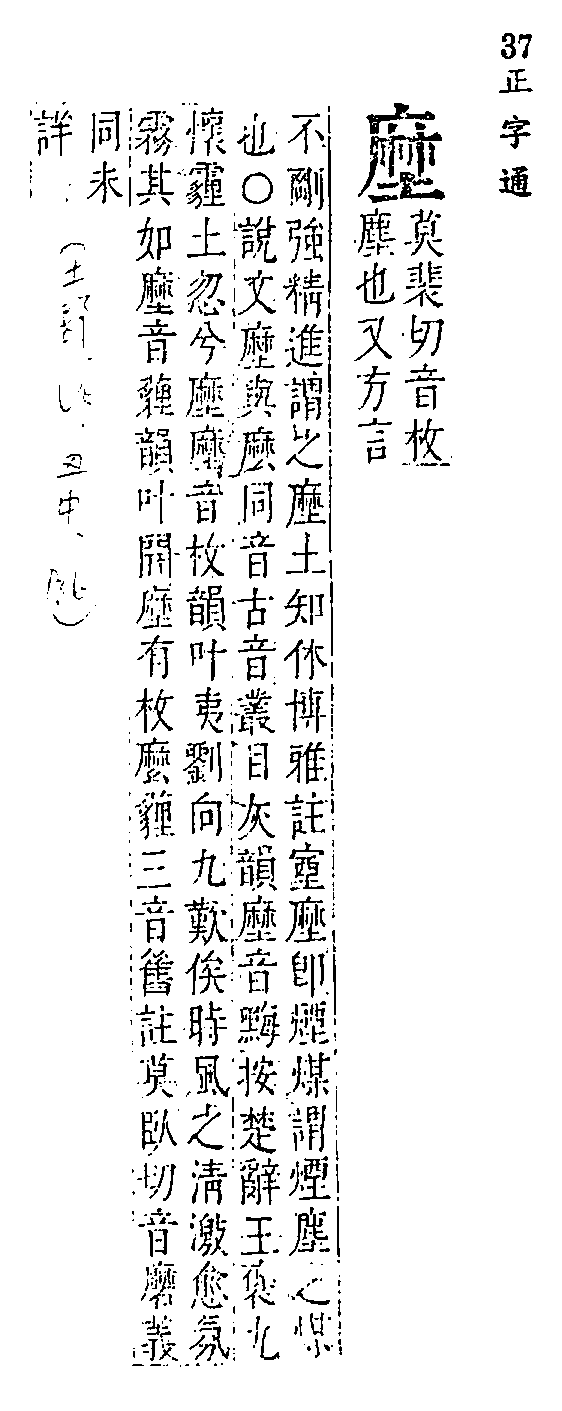 37
正字通
塺
莫裴切音枚
塵也又方言
不剛強精進謂之塺土知休博雅註窒塺卽煙煤謂煙塵之煤
也○說文塺與麼同音古音叢目灰韻塺音黣按楚辭王褒九
懷霾土忽兮塺塺音枚韻叶夷劉向九歎俟時風之淸激愈氛
霧其如塺音貍韻叶開塺有枚麼貍三音舊註莫臥切音磨義
同未
詳
(土部 丑中